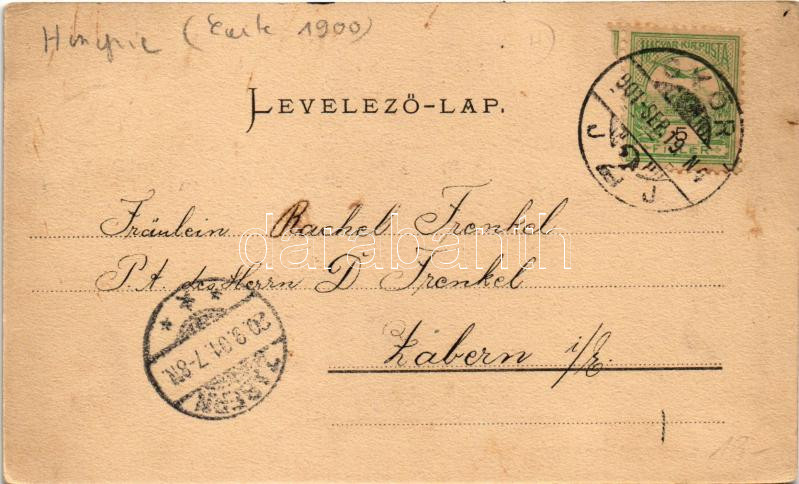 Hongrie (Carte 1900)
LEVELEZŐ-LAP.
MAGYAR KIR. POSTA
GYŐR
901 SEP 19 N4
FILLÉR
Fräulein Rachel Frenkel
P.A. des Herrn D Frenkel
Zabern i/E.
20.9.01.7-8N.
ZABERN
darabanth